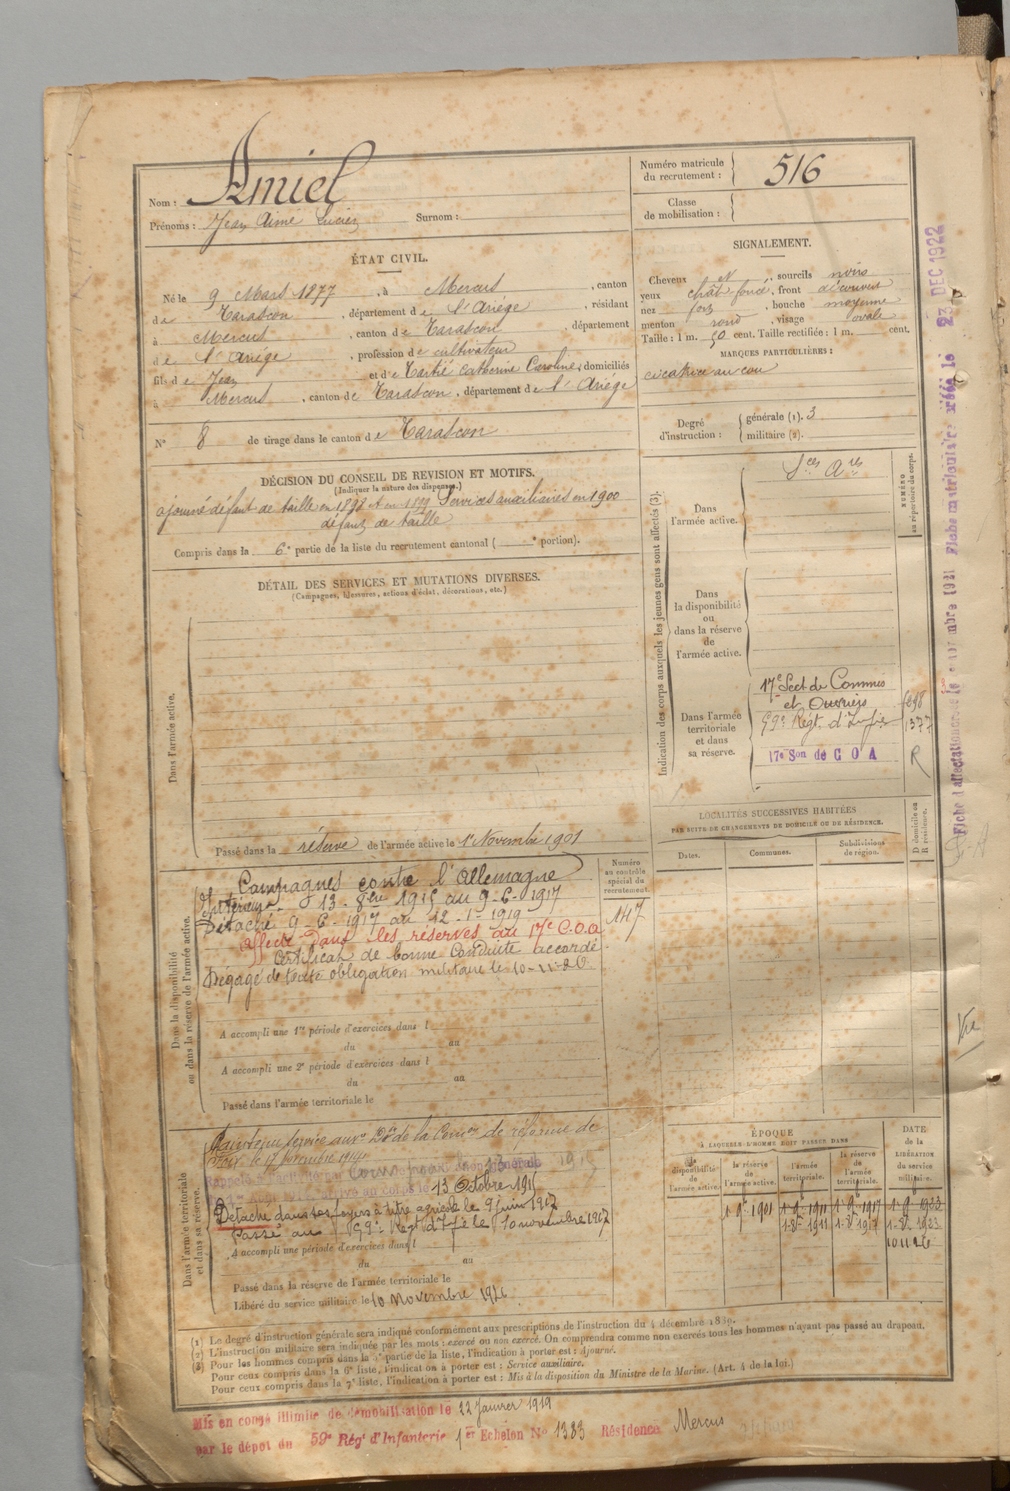 Nom : Amiel
Prénoms : Jean Aimé Lucien Surnom :
Numéro matricule du recrutement : 516
Classe de mobilisation :
ÉTAT CIVIL.
Né le 9 Mars 1877, à Mercus, canton
de Tarascon, département de l'Ariège, résidant
à Mercus, canton de Tarascon, département
de l'Ariège, profession de cultivateur
fils de Jean et de Catherine Caroline, domiciliés
à Mercus, canton de Tarascon, département de l'Ariège
N° 8 de tirage dans le canton de Tarascon
SIGNALEMENT.
Cheveux N, sourcils noirs
yeux chât. foncé, front découvert
nez fort, bouche moyenne
menton rond, visage ovale
Taille : 1 m. 50 cent. Taille rectifiée : 1 m. cent.
MARQUES PARTICULIÈRES :
cicatrice au cou
Degré d'instruction : générale (1). 3
militaire (2).
DÉCISION DU CONSEIL DE REVISION ET MOTIFS.
(Indiquer la nature des dispenses.)
ajourné défaut de taille en 1898 et en 1899 Services auxiliaires en 1900
défaut de taille
Compris dans la 6e partie de la liste du recrutement cantonal ( e portion).
DÉTAIL DES SERVICES ET MUTATIONS DIVERSES.
(Campagnes, blessures, actions d'éclat, décorations, etc.)
Dans l'armée active.
Passé dans la réserve de l'armée active le 1er Novembre 1901
Indication des corps auxquels les jeunes gens sont affectés (3).
NUMÉRO au répertoire du corps.
Dans l'armée active.
Sces Ares
Dans la disponibilité ou dans la réserve de l'armée active.
Dans l'armée territoriale et dans sa réserve.
17e Sect de Commis
et Ouvriers
59e Régt d'Infie 1377
17e Son de C O A R
LOCALITÉS SUCCESSIVES HABITÉES
PAR SUITE DE CHANGEMENTS DE DOMICILE OU DE RÉSIDENCE.
Dates. Communes. Subdivisions de région. D domicile ou R résidence.
Dans la disponibilité ou dans la réserve de l'armée active.
Numéro au contrôle spécial du recrutement.
147
Campagnes contre l'Allemagne
Intérieur 13 8bre 1915 au 9-6-1917
Détaché 9-6-1917 au 12-1-1919
Affecté dans les réserves au 17e C.O.A
Certificat de bonne Conduite accordé
Dégagé de toute obligation militaire le 10-11-26
A accompli une 1re période d'exercices dans l
du au
A accompli une 2e période d'exercices dans l
du au
Passé dans l'armée territoriale le
Dans l'armée territoriale et dans sa réserve.
Maintenu Service auxre de la Comon de réforme de
Foix le 17 1914
13 Octobre 1915
Détaché dans ses foyers à titre agricole le 9 juin 1917
Passé au 59e Régt d'Ife le 10 novembre 1917
A accompli une période d'exercices dans l
du au
Passé dans la réserve de l'armée territoriale le
Libéré du service militaire le 10 Novembre 1926
ÉPOQUE
À LAQUELLE L'HOMME DOIT PASSER DANS
DATE de la LIBÉRATION du service militaire.
la disponibilité de l'armée active. la réserve de l'armée active. l'armée territoriale. la réserve de l'armée territoriale.
1-9bre 1901 1-9-1911 1-9-1917 1-9-1923
1-8bre 1911 1-8-1917 1-8bre 1923
10 11 26
(1) Le degré d'instruction générale sera indiqué conformément aux prescriptions de l'instruction du 4 décembre 1889.
(2) L'instruction militaire sera indiquée par les mots : exercé ou non exercé. On comprendra comme non exercés tous les hommes n'ayant pas passé au drapeau.
(3) Pour les hommes compris dans la 5e partie de la liste, l'indication à porter est : Ajourné.
Pour ceux compris dans la 6e liste, l'indication à porter est : Service auxiliaire.
Pour ceux compris dans la 7e liste, l'indication à porter est : Mis à la disposition du Ministre de la Marine. (Art. 4 de la loi.)
Mis en congé illimité de démobilisation le 22 Janvier 1919
par le dépôt du 59e Rég't d'Infanterie 1er Echelon No 1383 Résidence Mercus
Fiche matriculaire 23 DEC 1922
Vu